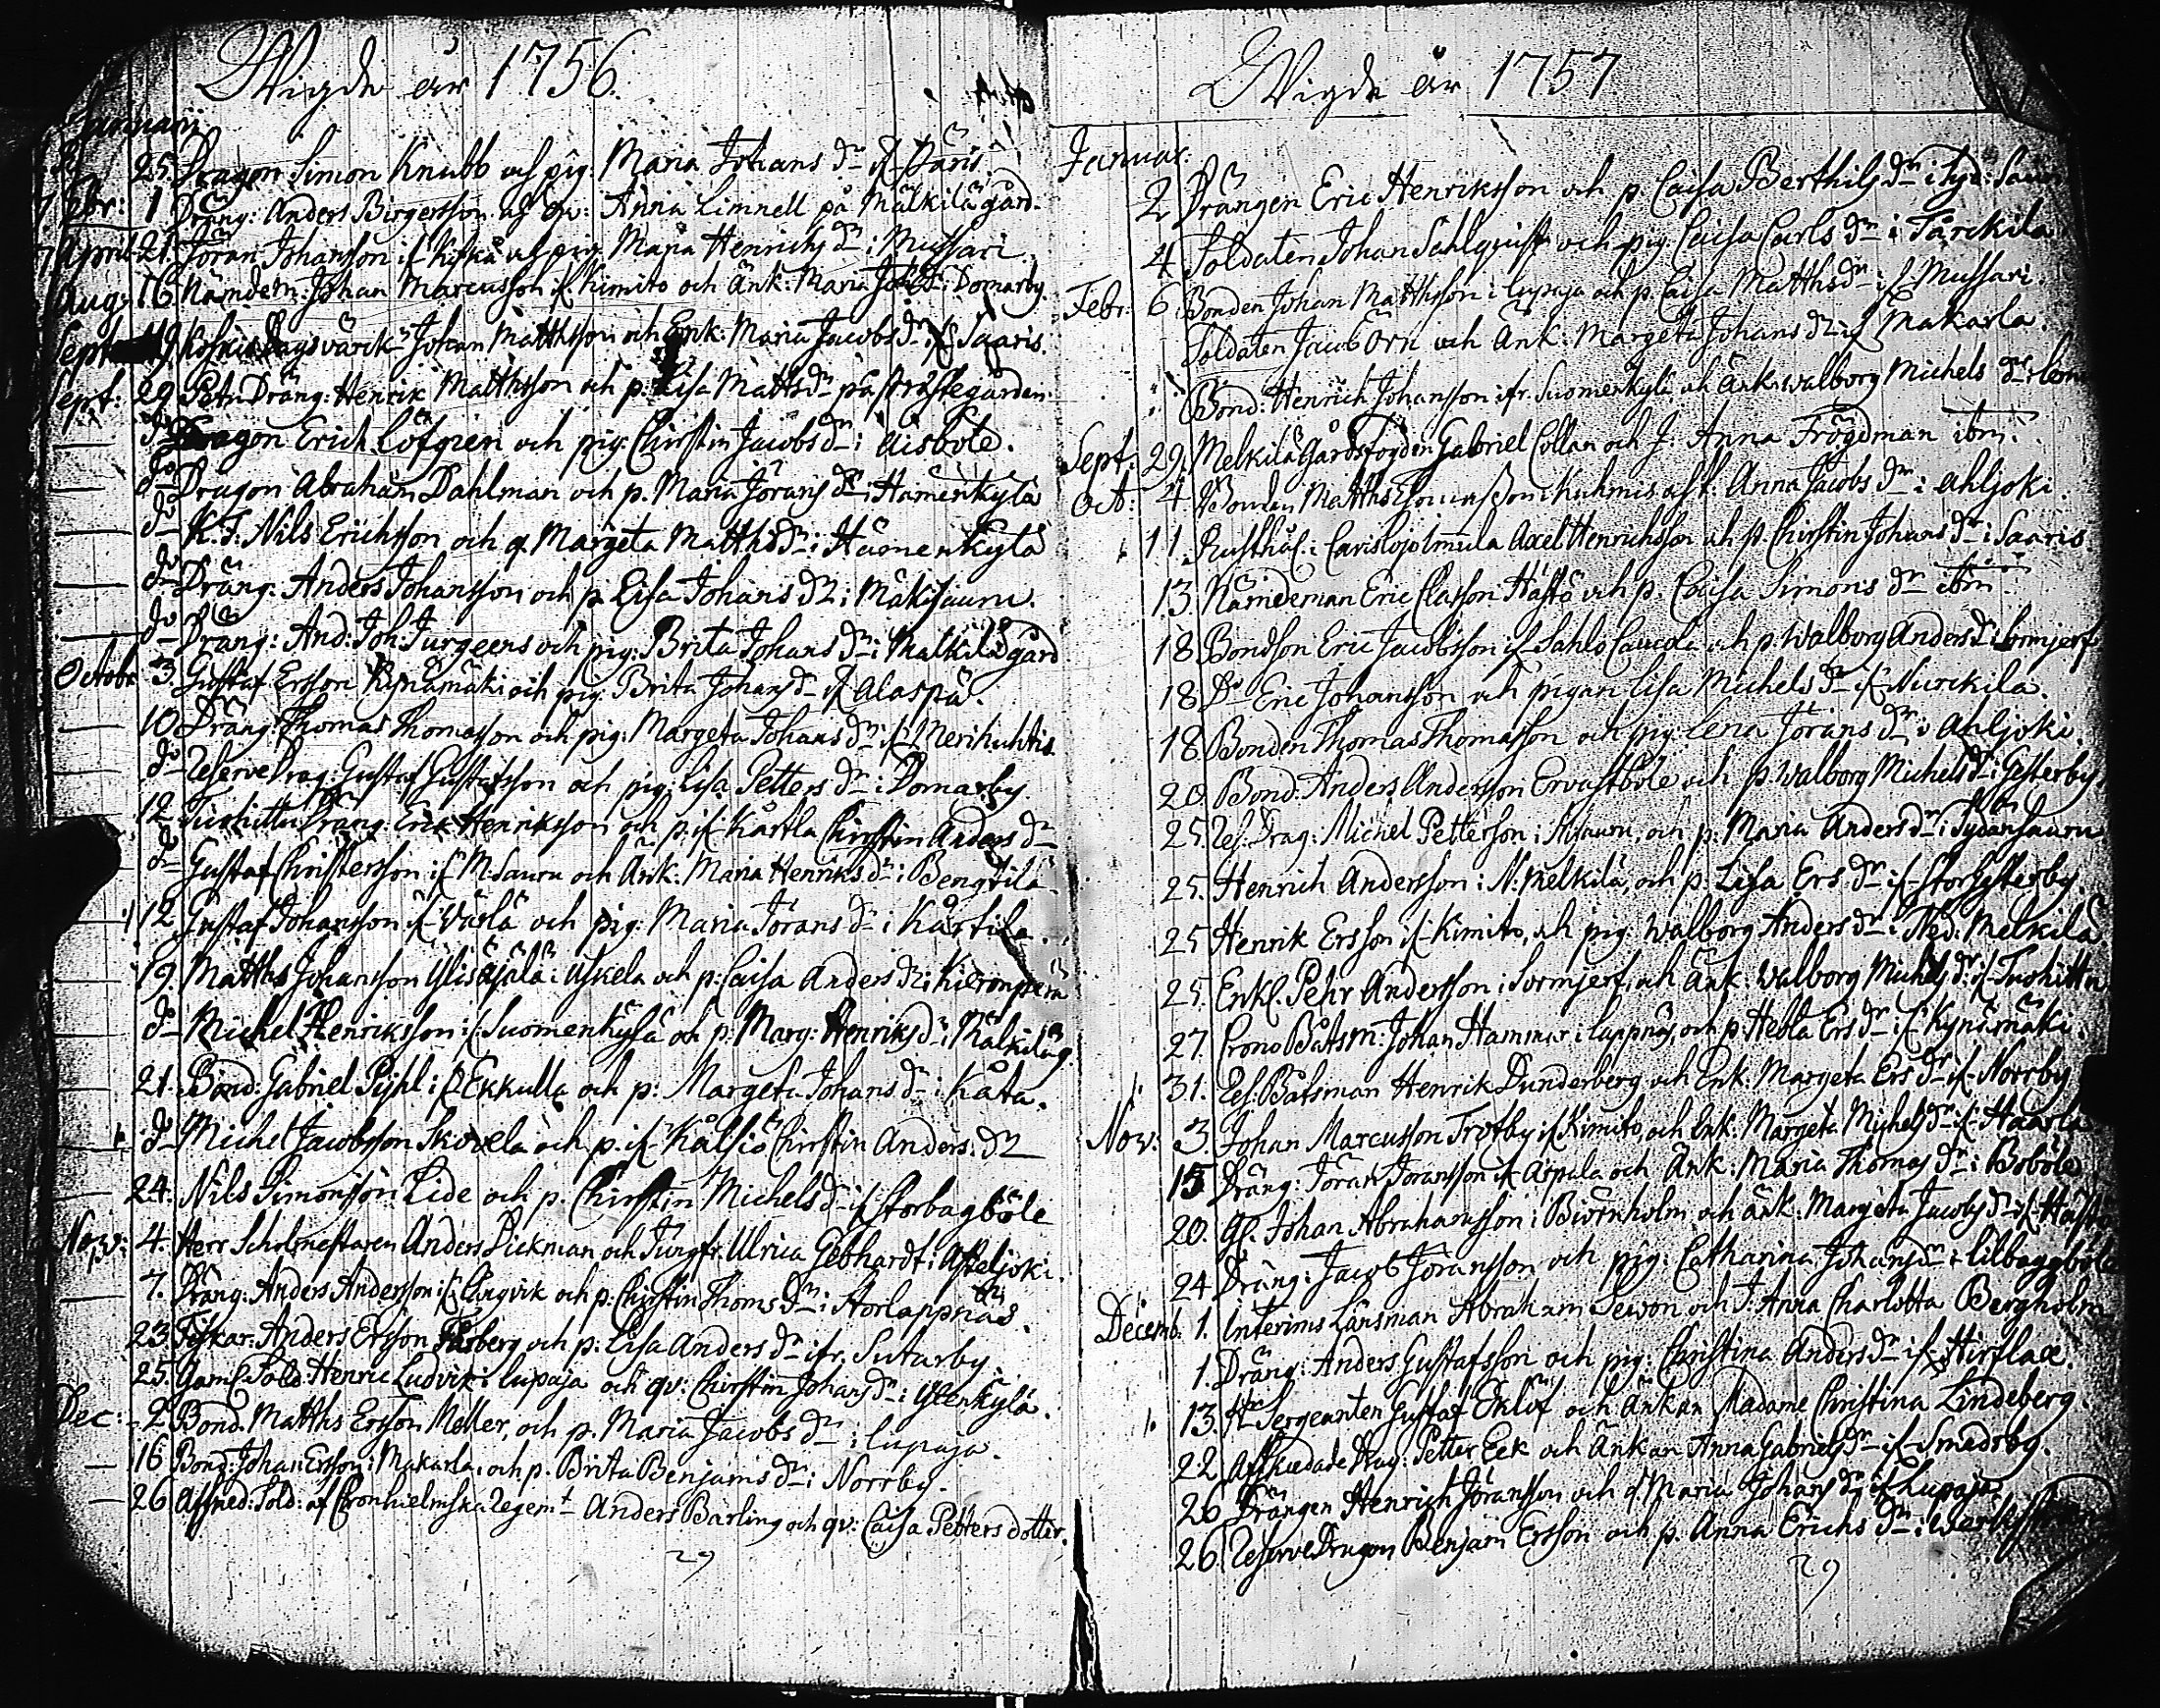 Wigde år 1756.
Januari
25. Dragon Simon Knubb och pig: Maria Johans dr if
Febr: 1. Dräng: Anders Birgersson och qv: Anna Limnell på Mälkilä gård.
April 21. Jöran Johansson if Kiskå och pig. Maria Henrichs dr i Mussari
Aug: 16. Nämdem: Johan Marcusson if Kimito och Änk: Maria Joh: dr i Domarby.
Sept 19. Dagsvärck: Johan Matthsson och Enk: Maria Jacobs dr if Saaris.
Sept: 29 Dräng: Henrik Matthsson och p: Lisa Matts dr på Prästegården.
do Dragon Erich Löfgren och pig: Chirstin Jacobs dr i Aisböle.
do Dragon Abraham Dahlman och p. Maria Jörans dr i Hämenkylä
do K. F. Nils Erichsson och q. Margeta Matths dr i Hämenkylä
do Dräng: Anders Johansson och p. Lisa Johans dr i Mäkisauru.
do Dräng: And: Joh: Jurgeens och pig: Brita Johans dr i Malkilä gård
Octobr 3. Gustaf Ersson Kynämäki och pig: Brita Johans dr if Alaspä.
10 Dräng Thomas Thomasson och pig: Margeta Johans dr if Merikuhtis
do Reserve Drag: Gustaf Gustafsson och pig: Lisa Petters dr i Domarby
12. Tuohittu Dräng Erik Henriksson och p. if Kårkla Chirstin Anders dr
do Gustaf Christersson if M. Sauru och Änk: Maria Henriks dr i Bengtilä
12 Gustaf Johansson if Värlä och pig: Maria Jörans dr i Kärkila.
19. Matths Johansson Ylisäjälä i Uskela och p: Caisa Anders dr i Kieronperä
do Michel Henriksson if Suomenkylä och p: Marg: Henriks dr i Mälkilä g.
21. Bond: Gabriel Pijhl if Ekkulla och p: Margeta Johans dr i Kåta.
do Michel Jacobsson Skovela och p. if Kålsiö Chirstin Anders: dr
24. Nils Simonsson Lide och p. Chirstin Michels dr if Storbagböle
Nov: 4. Herr Scholmestaren Anders Pickman och Jungfr. Ulrica Gebhardt i Asteljoki.
7. Dräng: Anders Andersson if Långvik och p: Chirstin Thoms dr i Storlappnäs.
23. Fiskar: Anders Ersson Färberg och p: Lisa Anders dr ifr. Sutarby.
25. Gaml Sold: Henric Ludvik i Lupaja och qv: Chirstin Johans dr i Ylenkylä.
Dec: 2 Bond. Matths Ersson Meller, och p. Maria Jacobs dr i Lupaja.
16 Bond: Johan Ersson i Makarla, och p. Brita Benjams dr i Norrby.
26 Affned: Sold: af Cronhielmska Regemt Anders Bärling och qv: Caisa Petters dotter.
29
Wigde år 1757
Januar:
2 Drängen Eric Henriksson och p. Caisa Berthils dr i Syd: Saur
4 Soldaten Johan Sahlqvist och pig. Caisa Carls dr i Tärckila
Febr: 6 Bonden Johan Matthsson i Lupaja och p. Caisa Matths dr if Mussari.
Soldaten Jacob Örn och Änk: Margeta Johans dr if Makarla.
Bond: Henrich Johansson ifr. Suomenkylä och Änk: Walborg Michels dr
Sept: 29. Melkilä Gårdsfogden Gabriel Collan och J: Anna Frögdman ibm.
Oct: 4 Bonden Matths Thomasson i Kuhmis och p: Anna Jacobs dr i Ahljoki.
11. Rusthål: i Carislojo Axel Henrichsson och p. Chirstin Johans dr i Saaris
13. Nämdeman Eric Classon Hästö och p. Caisa Simons dr ibm
18 Bondson Eric Jacobsson if Sahlo och p. Walborg Anders dr i Sormjerf
18. Do Eric Johansson och pigan Lisa Michels dr if Nurckila.
18 Bonden Thomas Thomasson och pig: Lena Jörans dr i Ahljoki.
20. Bond: Anders Andersson Ervastböle och p. Walborg Michels dr i Gesterby.
25. Res. Drag: Michel Pettersson i Sauru, och p. Maria Anders dr i Sydänsauru
25. Henrich Andersson i N. Melkilä, och p. Lisa Ers dr if StorGesterby.
25 Henrik Ersson if Kimito, och pig. Walborg Anders dr i Ned: Melkilä
25. Enkl. Pehr Andersson i Sormjerf, och Änk: Walborg Michels dr if Tuohittu
27. Crono Båtsm: Johan Hammar i Lappnäs, och p. Hebla Ers dr if Kynämäki.
31. Res. Båtsman Henrik Dunderberg och Enk: Margeta Ers dr if Norrby
Nov: 3. Johan Marcusson Trotby if Kimito, och Enk: Margeta Michels dr if Haarla
15 Dräng: Jöran Jöransson if Arpala och Änk: Maria Thomas dr i Boböle
20. Gl. Johan Abrahamsson i Biörnholm och Änk: Margeta Jacobs dr if Hästö
24 Dräng: Jacob Jöransson och pig: Catharina Johans dr i Lilbaggböle
Decemb: 1. Interims Länsman Abraham Sewon och J: Anna Charlotta Bergholm
1. Dräng: Anders Gustafsson och pig: Christina Anders dr if Hirslax.
13. Hr Sergeanten Gustaf Eklöf och Änkan Madame Christina Lindeberg.
22 Afskiedade Drag: Petter Eek och Änkan Anna Gabriels dr if Smedsby.
26 Drängen Henrich Jöransson och Maria Johans dr if Lupaja
26. Reserve Dragon Benjam Ersson och p. Anna Erichs dr i
29